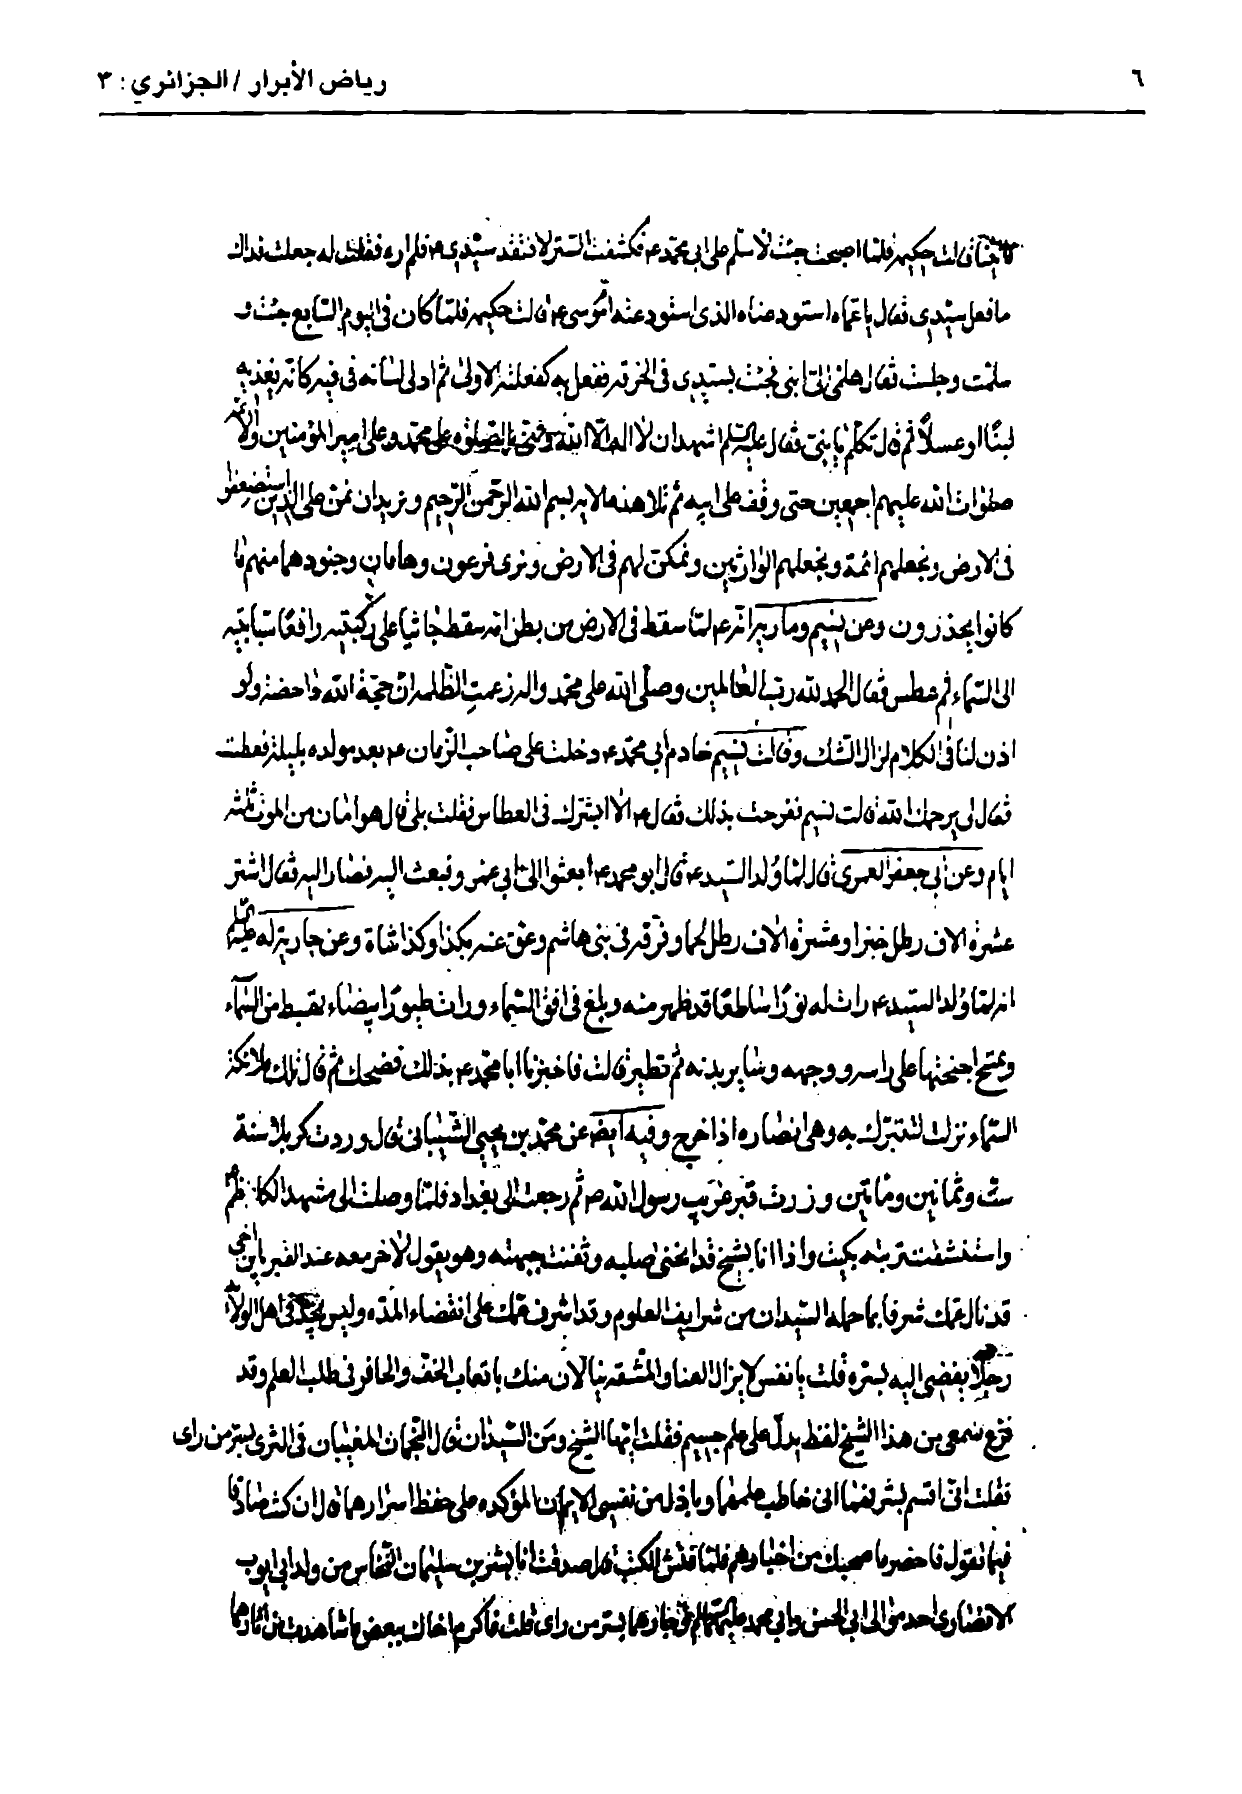 ٦
رياض الأبرار / الجزائري : ٣
قالت حكيمه فلما اصبحت جئت لاسلم على ابي محمد ع فكشفت الستر لاتفقد سيدي ع فلم اره فقلت له جعلت فداك
ما فعل سيدي فقال يا عماه استودعناه الذي استودعته ام موسى ع قالت حكيمه فلما كان في اليوم السابع جئت و
سلمت وجلست فقال هلمي الي ابني فجئت بسيدي في الخرقه ففعل به كفعلته الاولى ثم ادلى لسانه في فيه كانه يغذيه
لبنًا او عسلاً ثم قال تكلم يا بني فقال عليه السلم اشهد ان لا اله الا الله وثنى بالصلوه على محمد وعلى امير المؤمنين والائمه
صلوات الله عليهم اجمعين حتى وقف على ابيه ثم تلا هذه الايه بسم الله الرحمن الرحيم ونريد ان نمن على الذين استضعفوا
في الارض ونجعلهم ائمة ونجعلهم الوارثين ونمكن لهم في الارض ونرى فرعون وهامان وجنودهما منهم ما
كانوا يحذرون وعن نسيم وماريه انه ع لما سقط في الارض من بطن امه سقط جاثيا على ركبتيه رافعًا سبابتيه
الى السماء ثم عطس فقال الحمد لله رب العالمين وصلى الله على محمد واله زعمت الظلمه ان حجة الله داحضة ولو
اذن لنا في الكلام لزال الشك وقالت نسيم خادم ابي محمد ع دخلت على صاحب الزمان ع بعد مولده بليلة فعطست
فقال لي يرحمك الله قالت نسيم ففرحت بذلك فقال ع الا ابشرك في العطاس فقلت بلى قال هو امان من الموت ثلثه
ايام وعن ابي جعفر العمري قال لما ولد السيد ع قال ابو محمد ع ابعثوا الى ابي عمرو فبعث اليه فصار اليه فقال اشتر
عشرة الاف رطل خبزا وعشرة الاف رطل لحما وفرقه في بني هاشم وعق عنه بكذا وكذا شاة وعن جارية له
انه لما ولد السيد ع رات له نورًا ساطعًا قد ظهر منه وبلغ في افق السماء ورات طيورًا بيضاء تهبط من السمآء
وتمسح اجنحتها على راسه ووجهه وساير بدنه ثم تطير قالت فاخبرنا ابا محمد ع بذلك فضحك ثم قال تلك ملائكة
السماء نزلت لتتبرك به وهي انصاره اذا خرج وفيه ايض عن محمد بن يحيى الشيباني قال وردت كربلا سنة
ست وثمانين ومأتين وزرت قبر غريب رسول الله ص ثم رجعت الى بغداد فلما وصلت الى مشهد الكاظم ع
واستنشقت تربته بكيت واذا انا بشيخ قد انحنى صلبه وثفنت جبهته وهو يقول لاخر معه عند القبر يا بن اخي
قد نال عمك شرفا بما حمله السيدان من شرايف العلوم وقد اشرف عمك على انقضاء المده وليس يجد في اهل الولاء
رجلًا يفضي اليه بسره قلت يا نفس لا يزال العنا والمشقه ينالان منك باتعاب الخف والحافر في طلب العلم وقد
قرع سمعي من هذا الشيخ لفظ يدل على علم جسيم فقلت ايها الشيخ ومن السيدان قال النجمان المغيبان في الثرى بسر من راى
فقلت اني اقسم بشرفهما اني خاطب علمهما وباذل من نفسي الايمان المؤكده على حفظ اسرارهما قال ان كنت صادقا
فيما تقول فاحضر ما صحبك من اخبارهم فلما فتش الكتب قال صدقت انا بشر بن سليمان النخاس من ولد ابي ايوب
الانصاري احد موالي ابي الحسن وابي محمد عليهما السلم وجارهما بسر من راى قلت فاكرم اخاك ببعض ما شاهدت من اثارهما